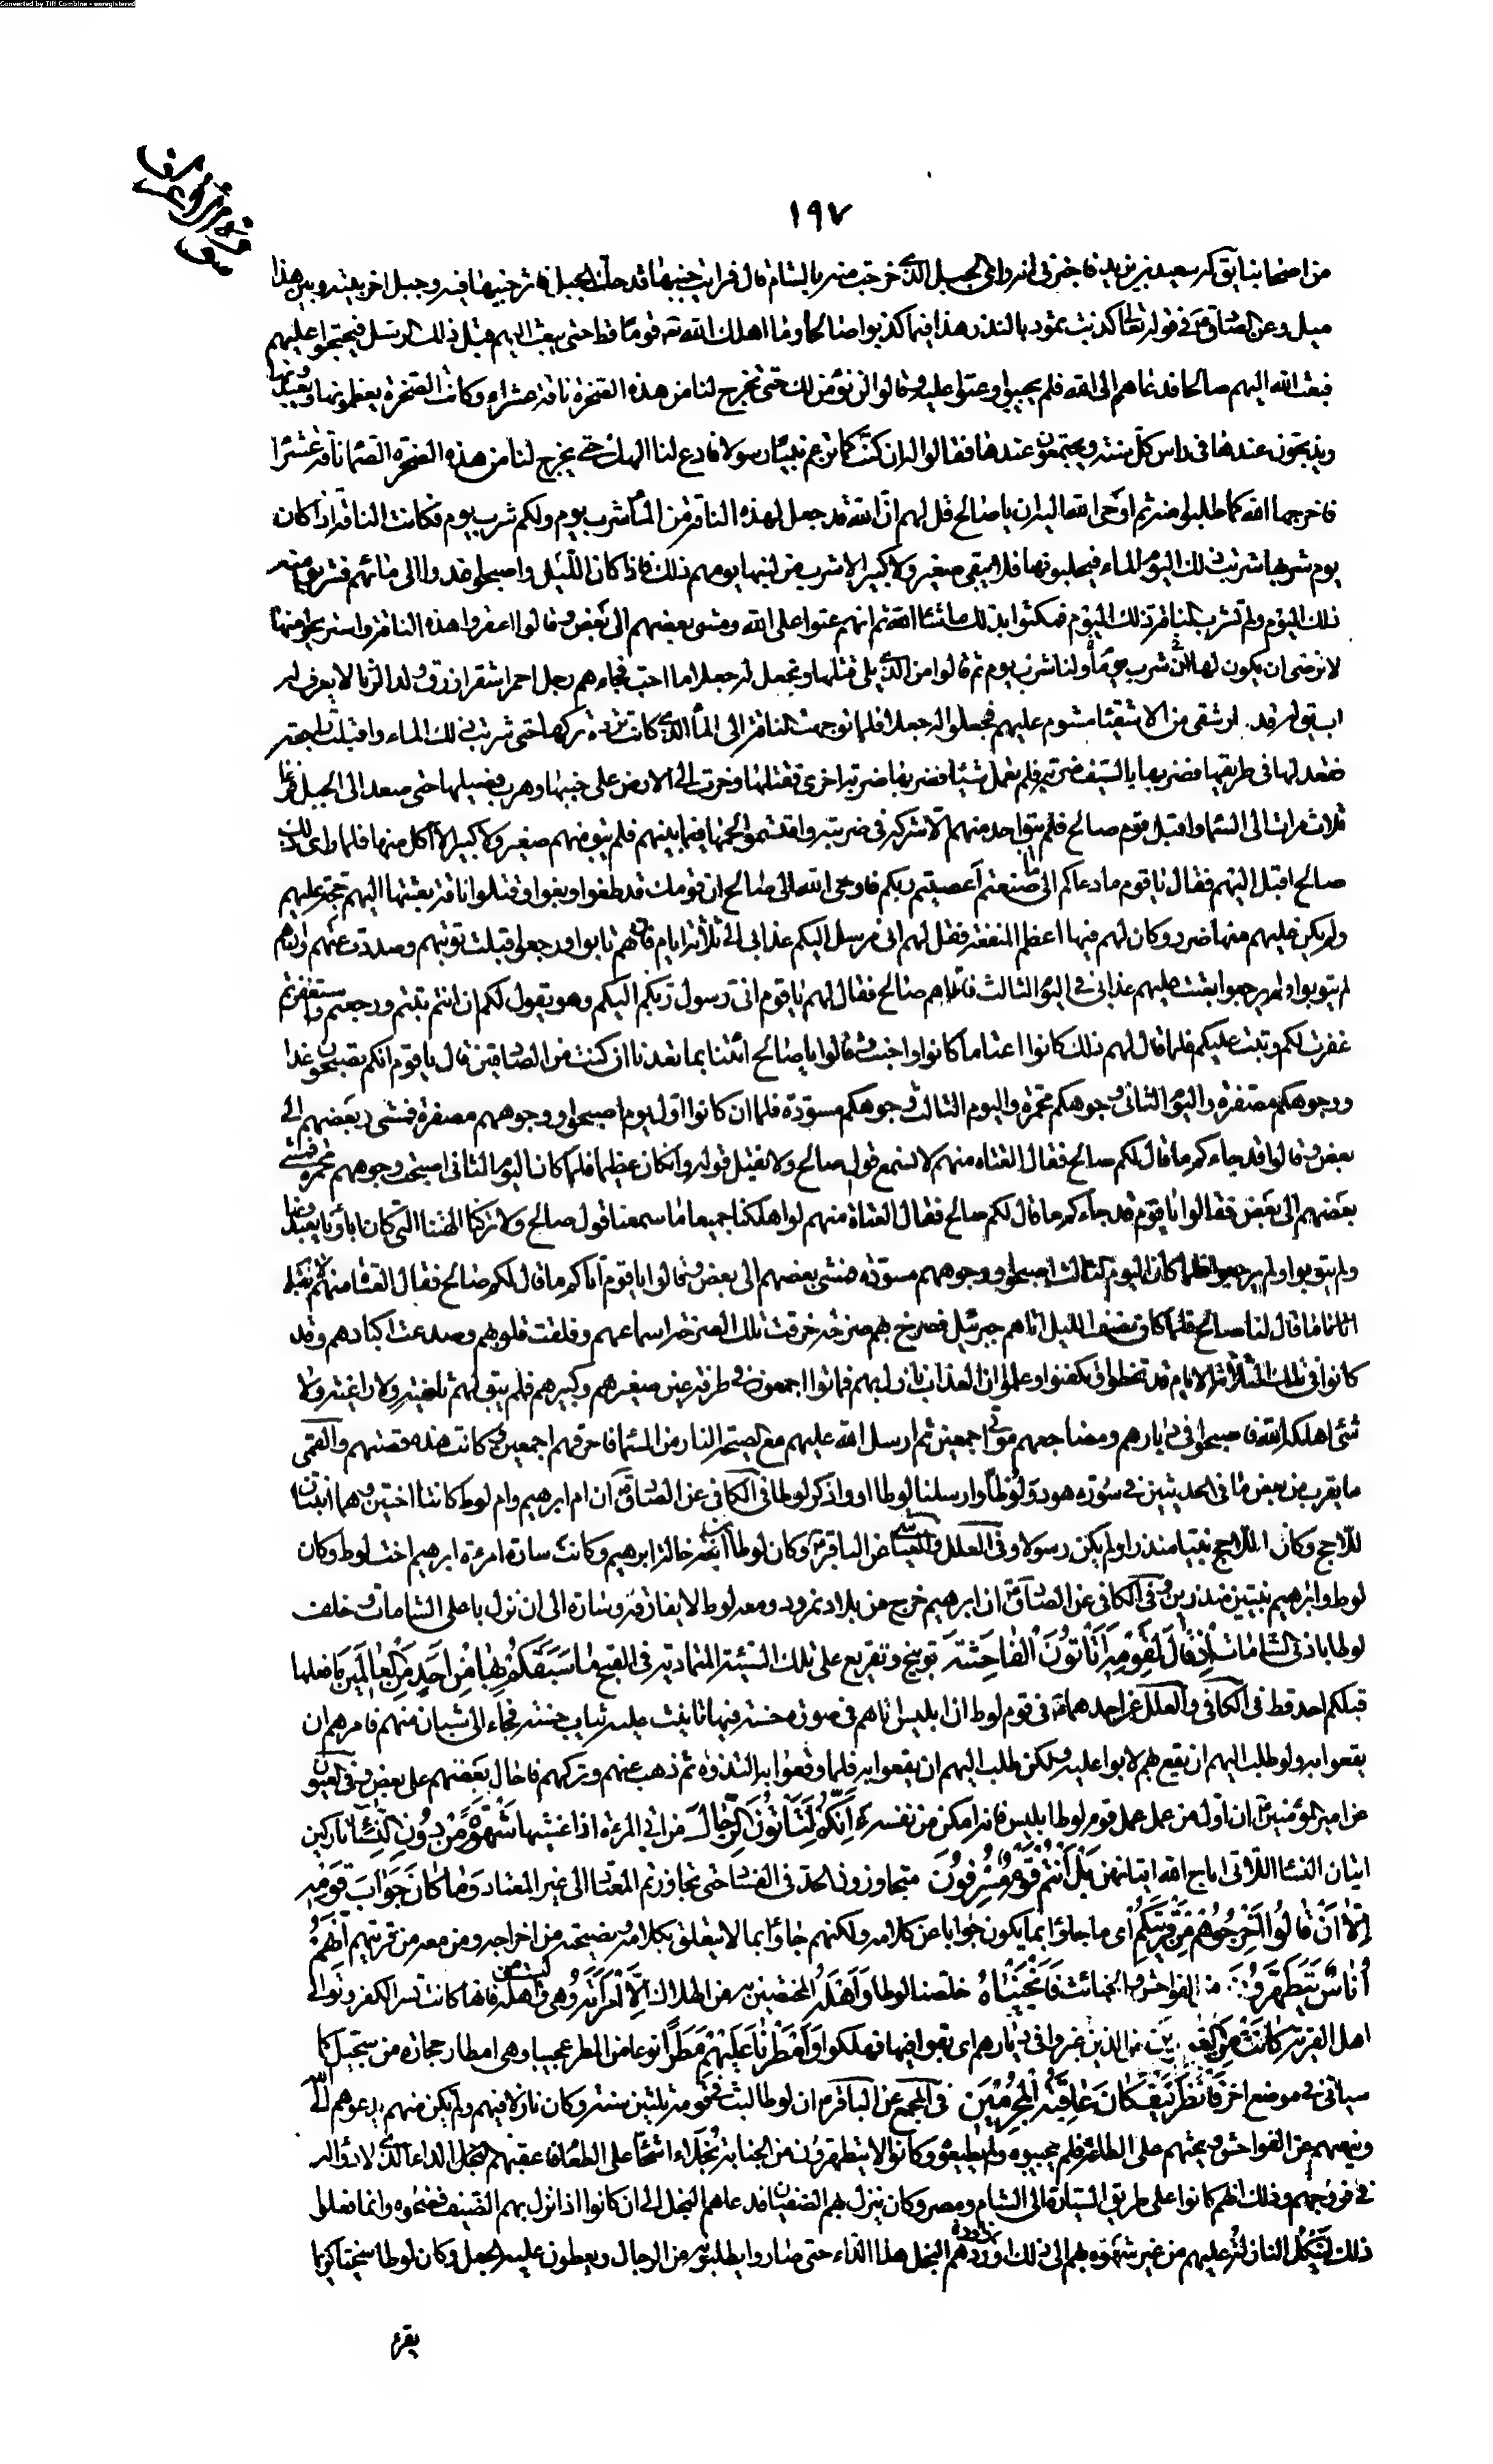 Converted by Tiff Combine - unregistered
١٩٧
من اصحابنا يقال له سعيد بن يزيد فاخبرني انه رأى الجبل الذي خرجت منه بالشام قال فرايت جنبها قد حك الجبل فاثر جنبها فيه وجبل اخر بينه وبين هذا
ميل وعن الصادق ع في قوله تعالى كذبت ثمود بالنذر هذا فيما كذبوا صالحا وما اهلك الله عز قوما قط حتى يبعث اليهم قبل ذلك الرسل فيحتجوا عليهم
فبعث الله اليهم صالحا فدعاهم الى الله فلم يجيبوا وعتوا عليه وقالوا لن نؤمن لك حتى تخرج لنا من هذه الصخرة ناقة عشراء وكانت الصخرة يعظمونها ويعبدونها
ويذبحون عندها في راس كل سنة ويجتمعون عندها فقالوا له ان كنت كما تزعم نبيا رسولا فادع لنا الهك حتى يخرج لنا من هذه الصخرة الصماء ناقة عشرا
فاخرجها الله كما طلبوا منه ثم اوحى الله اليه ان يا صالح قل لهم ان الله قد جعل لهذه الناقة من الماء شرب يوم ولكم شرب يوم فكانت الناقة اذا كان
يوم شربها شربت ذلك اليوم الماء فيحلبونها فلا يبقى صغير ولا كبير الا شرب من لبنها يومهم ذلك فاذا كان الليل واصبحوا غدوا الى مائهم فشربوا منه
ذلك اليوم ولم تشرب الناقة ذلك اليوم فمكثوا بذلك ما شاء الله ثم انهم عتوا على الله ومشى بعضهم الى بعض وقالوا اعقروا هذه الناقة واستريحوا منها
لا نرضى ان يكون لها شرب يوم ولنا شرب يوم ثم قالوا من الذي يلي قتلها ونجعل له جعلا ما احب فجاءهم رجل احمر اشقر ازرق ولد الزنا لا يعرف له
اب يقال له قدار شقي من الاشقياء مشوم عليهم فجعلوا له جعلا فلما توجهت الناقة الى الماء الذي كانت ترده تركها حتى شربت ذلك الماء واقبلت راجعة
فقعد لها في طريقها فضربها بالسيف ضربة فلم يعمل شيئا فضربها ضربة اخرى فقتلها وخرت الى الارض على جنبها وهرب فصيلها حتى صعد الى الجبل فرغا
ثلاث مرات الى السماء واقبل قوم صالح فلم يبق احد منهم الا شركه في ضربته واقتسموا لحمها فيما بينهم فلم يبق منهم صغير ولا كبير الا اكل منها فلما راى ذلك
صالح اقبل اليهم فقال يا قوم ما دعاكم الى ما صنعتم أعصيتم ربكم فاوحى الله الى صالح ان قومك قد طغوا وبغوا وقتلوا ناقة بعثتها اليهم حجة عليهم
ولم يكن عليهم منها ضرر وكان لهم فيها اعظم المنفعة فقل لهم اني مرسل اليكم عذابي الى ثلاثة ايام فان هم تابوا ورجعوا قبلت توبتهم وصددت عنهم وان هم
لم يتوبوا ولم يرجعوا بعثت عليهم عذابي في اليوم الثالث فاتاهم صالح فقال لهم يا قوم اني رسول ربكم اليكم وهو يقول لكم ان انتم تبتم ورجعتم واستغفرتم
غفرت لكم وتبت عليكم فلما قال لهم ذلك كانوا اعتا ما كانوا واخبث وقالوا يا صالح ائتنا بما تعدنا ان كنت من الصادقين قال يا قوم انكم تصبحون غدا
ووجوهكم مصفرة واليوم الثاني وجوهكم محمرة واليوم الثالث وجوهكم مسودة فلما ان كانوا اول يوم اصبحوا ووجوههم مصفرة فمشى بعضهم الى
بعض وقالوا قد جاءكم ما قال لكم صالح فقال العتاة منهم لا نسمع قول صالح ولا نقبل قوله وان كان عظيما فلما كان اليوم الثاني اصبحت وجوههم محمرة فمشى
بعضهم الى بعض فقالوا يا قوم قد جاءكم ما قال لكم صالح فقال العتاة منهم لو اهلكنا جميعا ما سمعنا قول صالح ولا تركنا الهتنا التي كان اباؤنا يعبدونها
ولم يتوبوا ولم يرجعوا فلما كان اليوم الثالث اصبحوا ووجوههم مسودة فمشى بعضهم الى بعض وقالوا يا قوم اتاكم ما قال لكم صالح فقال العتاة منهم قد
اتانا ما قال لنا صالح فلما كان نصف الليل اتاهم جبرئيل فصرخ بهم صرخة خرقت تلك الصرخة اسماعهم وفلقت قلوبهم وصدعت اكبادهم وقد
كانوا في تلك الثلاثة الايام قد تحنطوا وتكفنوا وعلموا ان العذاب نازل بهم فماتوا اجمعون في طرفة عين صغيرهم وكبيرهم فلم يبق لهم ثاغية ولا راغية ولا
شئ الا اهلكه الله فاصبحوا في ديارهم ومضاجعهم موتى اجمعين ثم ارسل الله عليهم مع الصيحة النار من السماء فاحرقهم اجمعين وكانت هذه قصتهم والقمي
ما يقرب من بعض ما في الحديثين في سورة هود ولوطا وارسلنا لوطا او واذكر لوطا في الكافي عن الصادق ع ان ام ابرهيم وام لوط كانتا اختين وهما ابنتان
للاحج وكان اللاحج نبيا منذرا ولم يكن رسولا وفي العلل والعياشي عن الباقر ع وكان لوطا ابن خالة ابرهيم وكانت سارة امرءة ابرهيم اخت لوط وكان
لوط وابرهيم نبيين منذرين وفي الكافي عن الصادق ع ان ابرهيم خرج من بلاد نمرود ومعه لوط لا يفارقه وسارة الى ان نزل باعلى الشامات وخلف
لوطا بادنى الشامات اِذْ قَالَ لِقَوْمِهِ اَتَأْتُونَ الْفَاحِشَةَ توبيخ وتقريع على تلك السيئة المتمادية في القبح مَا سَبَقَكُمْ بِهَا مِنْ اَحَدٍ مِنَ الْعَالَمِينَ ما فعلها
قبلكم احد قط في الكافي والعلل عن احدهما ع في قوم لوط ان ابليس اتاهم في صورة حسنة فيها تانيث عليه ثياب حسنة فجاء الى شبان منهم فامرهم ان
يقعوا به ولو طلب اليهم ان يقع بهم لابوا عليه ولكن طلب اليهم ان يقعوا به فلما وقعوا به التذوه ثم ذهب عنهم وتركهم فاحال بعضهم على بعض وفي العيون
عن امير المؤمنين ع ان اول من عمل عمل قوم لوط ابليس فانه امكن من نفسه اَئِنَّكُمْ لَتَأْتُونَ الرِّجَالَ من اتى المرءة اذا غشيها شَهْوَةً مِنْ دُونِ النِّسَاءِ تاركين
اتيان النساء اللاتي اباح الله اتيانهن بَلْ اَنْتُمْ قَوْمٌ مُسْرِفُونَ متجاوزون الحد في الفساد حتى تجاوزتم المعتاد الى غير المعتاد وَمَا كَانَ جَوَابَ قَوْمِهِ
اِلَّا اَنْ قَالُوا اَخْرِجُوهُمْ مِنْ قَرْيَتِكُمْ اى ما جاؤا بما يكون جوابا عن كلامه ولكنهم جاؤا بما لا يتعلق بكلامه ونصيحته من اخراجه ومن معه من قريتهم اِنَّهُمْ
اُنَاسٌ يَتَطَهَّرُونَ من الفواحش والخبائث فَاَنْجَيْنَاهُ خلصنا لوطا وَاَهْلَهُ المختصين به من الهلاك اِلَّا امْرَاَتَهُ وهي واهلة فانها كانت تسر الكفر وتوالي
اهل القرية كَانَتْ مِنَ الْغَابِرِينَ من الذين غبروا في ديارهم اى بقوا فيها فهلكوا وَاَمْطَرْنَا عَلَيْهِمْ مَطَرًا نوعا من المطر عجيبا وهي امطار حجارة من سجيل كما
سياتي في موضع اخر فَانْظُرْ كَيْفَ كَانَ عَاقِبَةُ الْمُجْرِمِينَ في المجمع عن الباقر ع ان لوطا لبث في قومه ثلثين سنة وكان نازلا فيهم ولم يكن منهم يدعوهم الى الله
وينهيهم عن الفواحش ويحثهم على الطاعة فلم يجيبوه ولم يطيعوه وكانوا لا يتطهرون من الجنابة بخلاء اشحاء على الطعام فاعقبهم البخل الداء الذي لا دواء له
في فروجهم وذلك انهم كانوا على طريق السيارة الى الشام ومصر وكان ينزل بهم الضيفان فدعاهم البخل الى ان كانوا اذا نزل بهم الضيف فضحوه وانما فعلوا
ذلك لتنكل النازلة عليهم من غير شهوة بهم الى ذلك فاوردهم البخل هذا الداء حتى صاروا يطلبونه من الرجال ويعطون عليه الجعل وكان لوطا سخيا كريما
يقرى